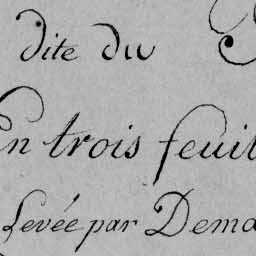 dite du
En trois feuil
Levée par Dema